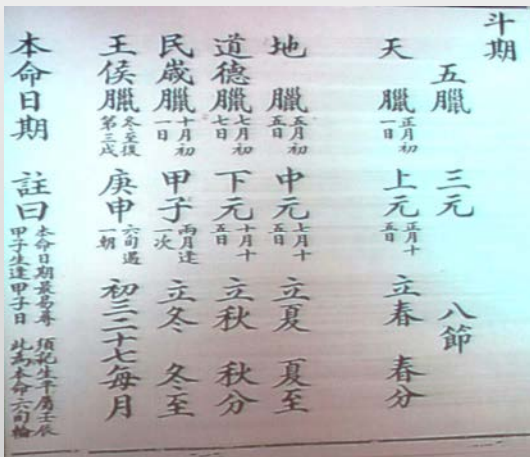 斗期
五臘 三元 八節
天臘 正月初一日 上元 正月十五日 立春 春分
地臘 五月初五日 中元 七月十五日 立夏 夏至
道德臘 七月初七日 下元 十月十五日 立秋 秋分
民歲臘 十月初一日 甲子 兩月逢一次 立冬 冬至
王侯臘 冬至後第三戌 庚申 六旬遇一朝 初三二十七每月
本命日期 註曰 本命日期最易尋 須記生平屬壬辰 甲子生逢甲子日 此為本命六旬輪